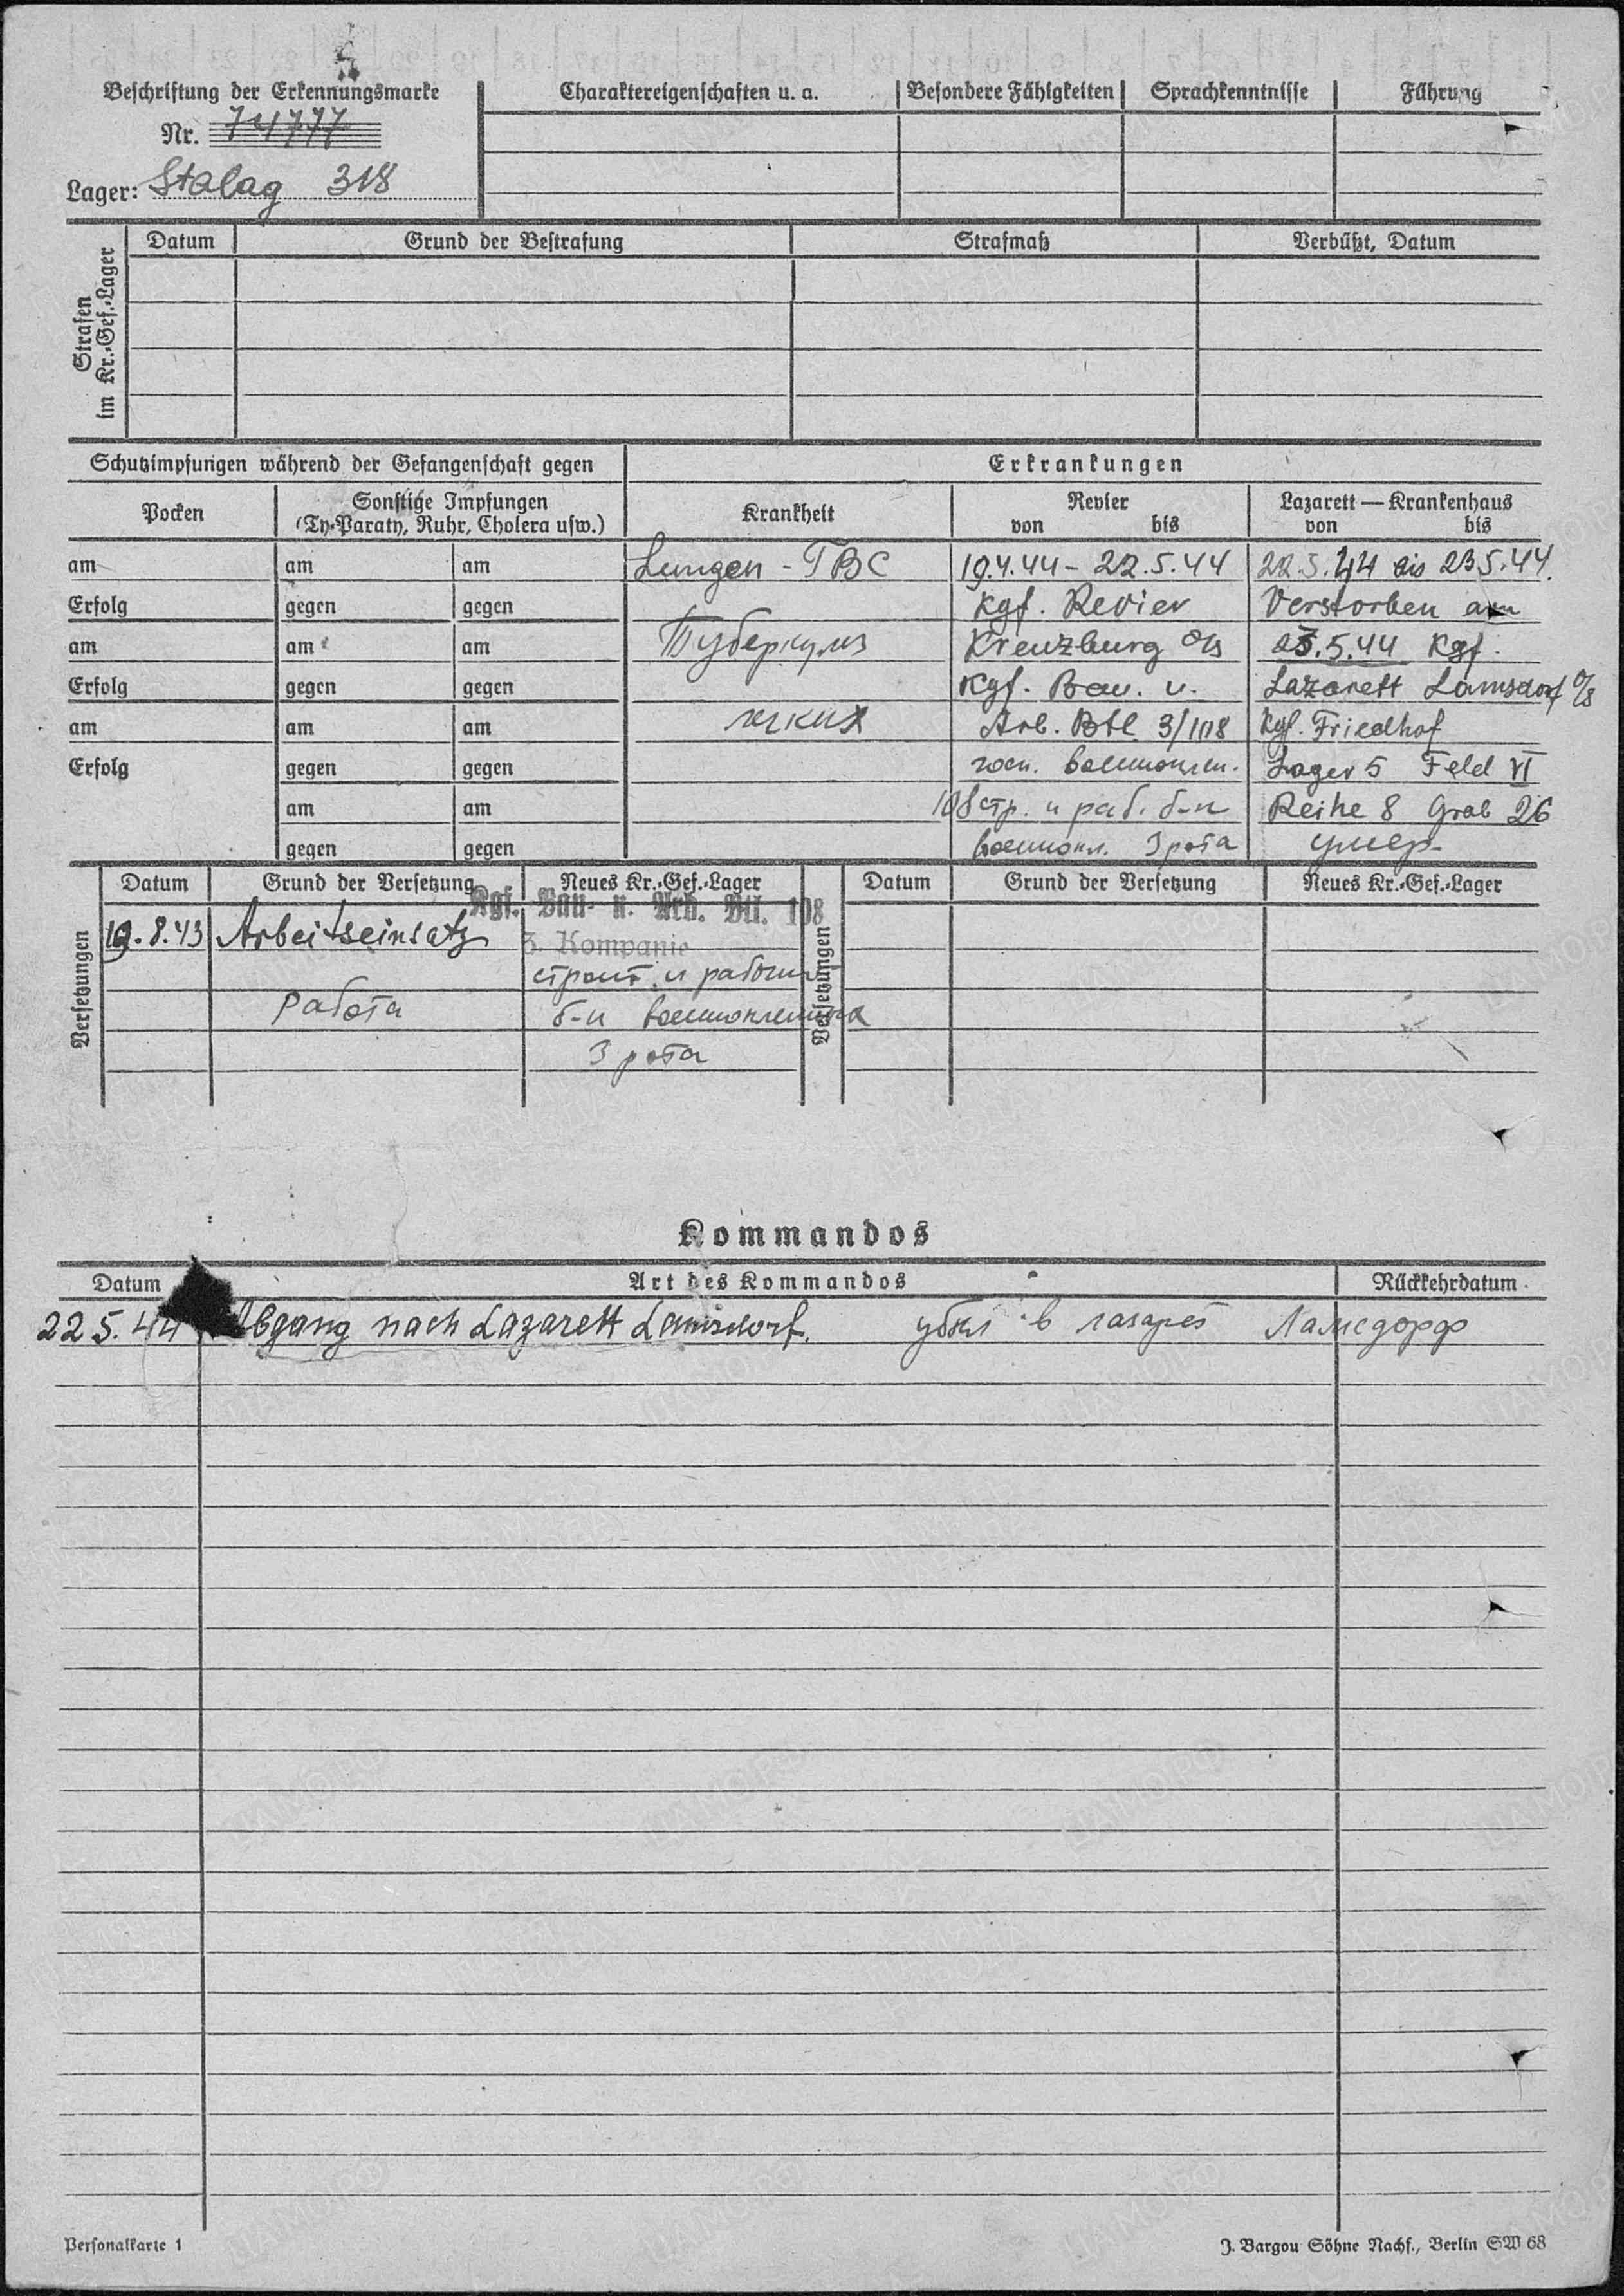 Beschriftung der Erkennungsmarke
Nr. 74777
Lager: Stalag 318
Charaktereigenschaften u. a.
Besondere Fähigkeiten
Sprachkenntnisse
Führung
Strafen
im Kr.-Gef.-Lager
Datum
Grund der Bestrafung
Strafmaß
Verbüßt, Datum
Schutzimpfungen während der Gefangenschaft gegen
Erkrankungen
Pocken
Sonstige Impfungen
(Ty-Paraty, Ruhr, Cholera usw.)
Krankheit
Revier
von bis
Lazarett — Krankenhaus
von bis
am am am Lungen - TBC 19.4.44 - 22.5.44 22.5.44 bis 23.5.44.
Erfolg gegen gegen Kgf. Revier Verstorben am
am am am Туберкулз Kreuzburg O/S 23.5.44 Kgf.
Erfolg gegen gegen Kgf. Bau. u. Lazarett Lamsdorf O/S
am am am легких Arb. Btl. 3/108 Kgf. Friedhof
Erfolg gegen gegen госп. военноплен. Lager 5 Feld VI
am am 108 стр. и раб. б-н Reihe 8 Grab 26
gegen gegen военнопл. 3 рота умер
Versetzungen
Datum
Grund der Versetzung
Neues Kr.-Gef.-Lager
19.8.43 Arbeitseinsatz Kgf. Bau- u. Arb. Btl. 108
3. Kompanie
строит. и рабочий
Работа б-н военнопленных
3 рота
Versetzungen
Datum
Grund der Versetzung
Neues Kr.-Gef.-Lager
Kommandos
Datum
Art des Kommandos
Rückkehrdatum
22.5.44 Abgang nach Lazarett Lamsdorf. убыл в лазарет Ламсдорф
Personalkarte 1
J. Bargou Söhne Nachf., Berlin SW 68